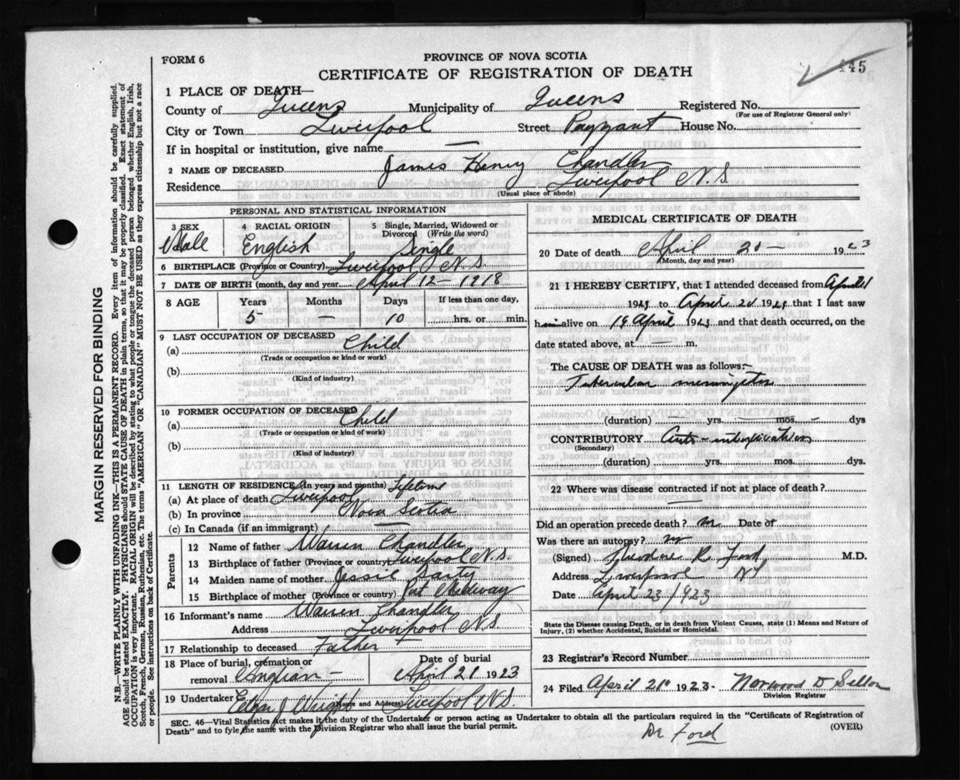 FORM 6
PROVINCE OF NOVA SCOTIA
CERTIFICATE OF REGISTRATION OF DEATH
145
1 PLACE OF DEATH—
County of Queens Municipality of Queens Registered No.
(For use of Registrar General only)
City or Town Liverpool Street House No.
If in hospital or institution, give name —
2 NAME OF DECEASED James Henry Chandler
Residence Liverpool N.S.
(Usual place of abode)
MARGIN RESERVED FOR BINDING
N.B.—WRITE PLAINLY WITH UNFADING INK—THIS IS A PERMANENT RECORD. Every item of information should be carefully supplied.
AGE should be stated EXACTLY. PHYSICIANS should STATE CAUSE OF DEATH in plain terms, so that it may be properly classified. Exact statement of
OCCUPATION is very important. RACIAL ORIGIN will be described by stating to what people or tongue the deceased person belonged whether English, Irish,
Scotch, French, German, Russian, Ruthenian, etc. The terms "AMERICAN" OR "CANADIAN" MUST NOT BE USED as they express citizenship but not a race
or people. See instructions on back of Certificate.
PERSONAL AND STATISTICAL INFORMATION
3 SEX 4 RACIAL ORIGIN 5 Single, Married, Widowed or
Divorced (Write the word)
Male English Single
6 BIRTHPLACE (Province or Country) Liverpool N.S.
7 DATE OF BIRTH (month, day and year) April 12 - 1918
8 AGE Years Months Days If less than one day,
5 — 10 hrs. or min.
9 LAST OCCUPATION OF DECEASED
(a) Child
(Trade or occupation or kind or work)
(b)
(Kind of industry)
10 FORMER OCCUPATION OF DECEASED
(a) Child
(Trade or occupation or kind of work)
(b)
(Kind of industry)
11 LENGTH OF RESIDENCE (In years and months) Lifetime
(a) At place of death Liverpool
(b) In province Nova Scotia
(c) In Canada (if an immigrant) —
Parents
12 Name of father Warren Chandler
13 Birthplace of father (Province or country) Liverpool N.S.
14 Maiden name of mother Jessie
15 Birthplace of mother (Province or country) Port Medway
16 Informant's name Warren Chandler
Address Liverpool N.S.
17 Relationship to deceased Father
18 Place of burial, cremation or Date of burial
removal Anglican - April 21 1923
19 Undertaker Wright (Name and Address) Liverpool N.S.
MEDICAL CERTIFICATE OF DEATH
20 Date of death April 20 — 1923
(Month, day and year)
21 I HEREBY CERTIFY, that I attended deceased from April 1
1923 to April 20 1923 that I last saw
him alive on 19 April 1923 and that death occurred, on the
date stated above, at — m.
The CAUSE OF DEATH was as follows:—
Tubercular meningitis
(duration) — yrs. — mos. — dys
CONTRIBUTORY
(Secondary)
(duration) yrs. mos. dys.
22 Where was disease contracted if not at place of death?
Did an operation precede death? no Date of
Was there an autopsy? no
(Signed) Theodore R. Ford M.D.
Address Liverpool NS
Date April 23 1923
State the Disease causing Death, or in death from Violent Causes, state (1) Means and Nature
of Injury, (2) whether Accidental, Suicidal or Homicidal.
23 Registrar's Record Number
24 Filed April 21st 1923. Norwood D
Division Registrar
SEC. 46—Vital Statistics Act makes it the duty of the Undertaker or person acting as Undertaker to obtain all the particulars required in the "Certificate of Registration of
Death" and to fyle the same with the Division Registrar who shall issue the burial permit.
(OVER)
Dr Ford